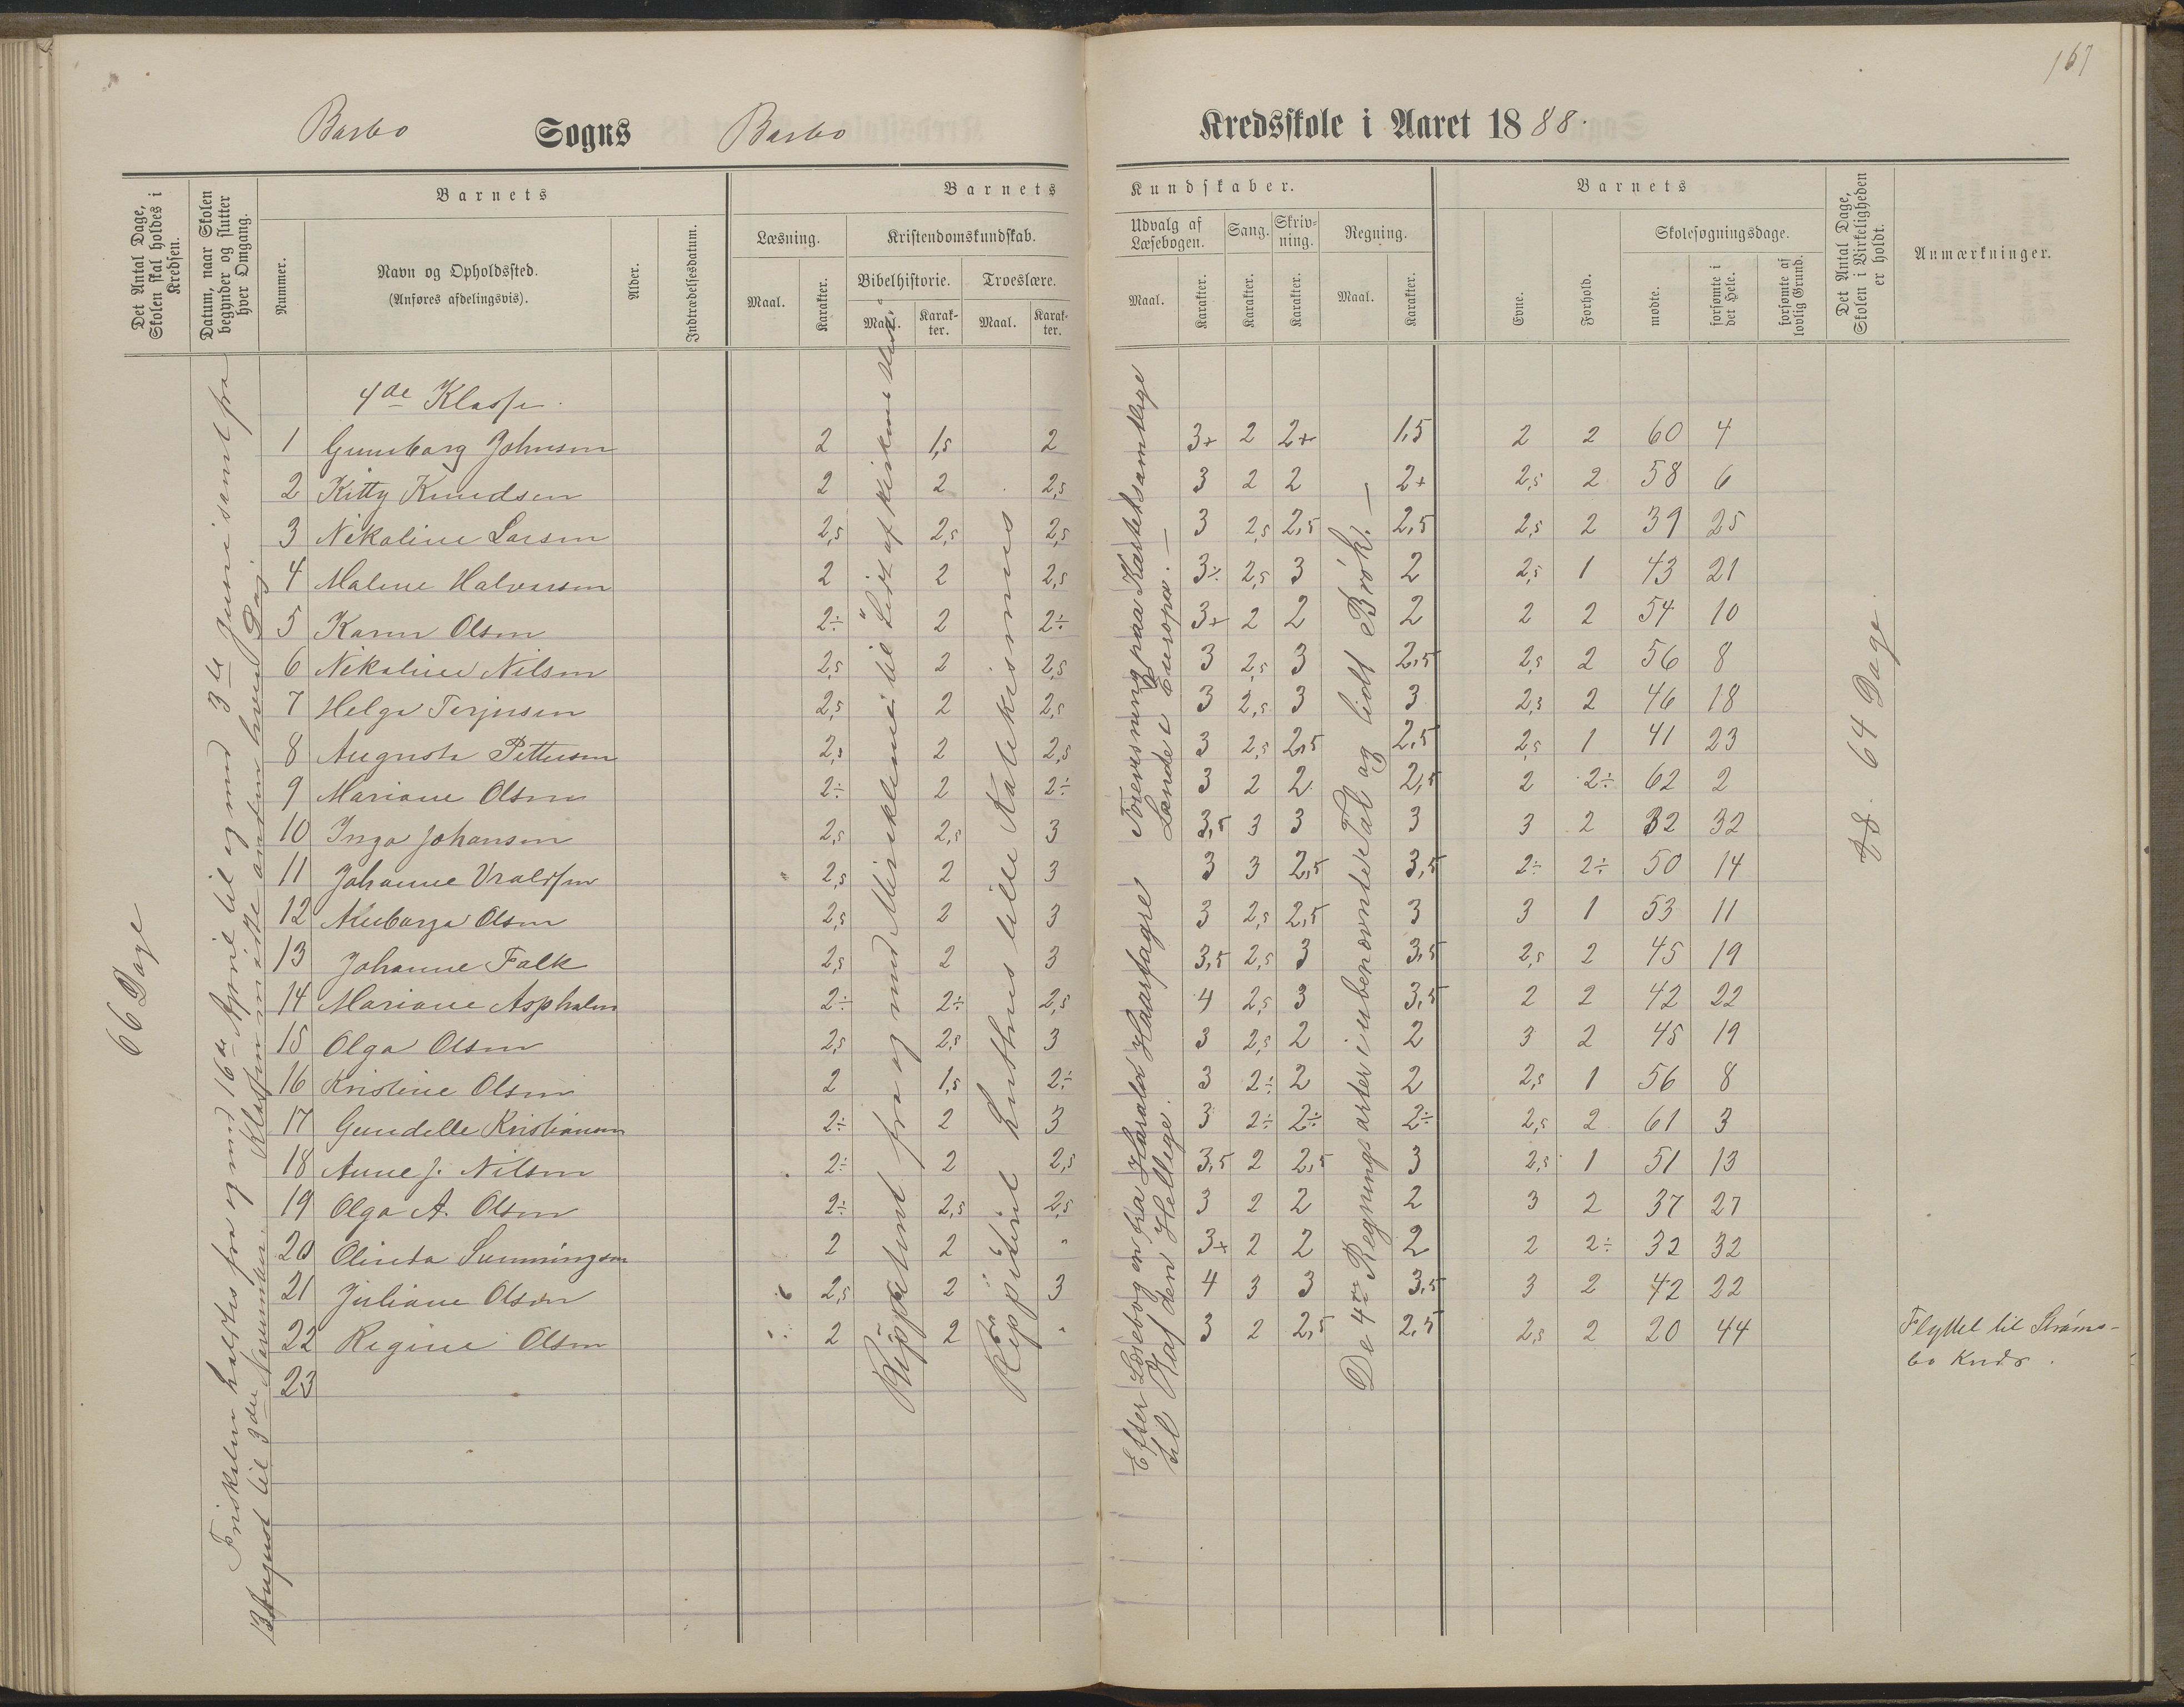 167
Barbo Sogns Barbo Kredsskole i Aaret 1888.
Det Antal Dage, Skolen skal holdes i Kredsen.
Datum, naar Skolen begynder og slutter hver Omgang.
Barnets
Nummer.
Navn og Opholdssted.
(Anføres afdelingsvis).
Alder.
Indtrædelsesdatum.
Barnets Kundskaber.
Læsning.
Maal. Karakter.
Kristendomskundskab.
Bibelhistorie. Troeslære.
Maal. Karakter. Maal. Karakter.
Udvalg af Læsebogen.
Maal. Karakter.
Sang. Karakter.
Skrivning. Karakter.
Regning.
Maal. Karakter.
Barnets
Evne. Forhold.
Skolesøgningsdage.
mødte. forsømte i det Hele. forsømte af lovlig Grund.
Det Antal Dage, Skolen i Virkeligheden er holdt.
Anmærkninger.
66 Dage
holdtes fra og med 16de April til og med 3de Juni samt fra
13 August til 3die November. Klassen møtte anden hver Dag.
4de Klasse.
1 Gunborg Johnsen 2 1,5 2 3+ 2 2+ 1,5 2 2 60 4
2 Kitty Knudsen 2 2 2,5 3 2 2 2+ 2,5 2 58 6
3 Nikoline Larsen 2,5 2,5 2,5 3 2,5 2,5 2,5 2,5 2 39 25
4 Malene Halvorsen 2 2 2,5 3÷ 2,5 3 2 2,5 1 43 21
5 Karen Olsen 2÷ 2 2÷ 3+ 2 2 2 2 2 54 10
6 Nikoline Nilsen 2,5 2 2,5 3 2,5 3 2,5 2,5 2 56 8
7 Helga Terjesen 2,5 2 2,5 3 2,5 3 3 2,5 2 46 18
8 Augusta Pettersen 2,5 2 2,5 3 2,5 2,5 2,5 2,5 1 41 23
9 Mariane Olsen 2÷ 2 2÷ 3 2 2 2,5 2 2÷ 62 2
10 Inga Johansen 2,5 2,5 3 3,5 3 3 3 3 2 32 32
11 Johanne 2,5 2 3 3 3 2,5 3,5 2÷ 2÷ 50 14
12 Olsen 2,5 2 3 3 2,5 2,5 3 3 1 53 11
13 Johanne Falk 2,5 2 3 3,5 2,5 3 3,5 2,5 2 45 19
14 Mariane Aspholm 2÷ 2÷ 2,5 4 2,5 3 3,5 2 2 42 22
15 Olga Olsen 2,5 2,5 3 3 2,5 2 2 3 2 45 19
16 Kristine Olsen 2 1,5 2÷ 3 2÷ 2 2 2,5 1 56 8
17 Gundelle Kristiansen 2÷ 2 3 3 2÷ 2÷ 2÷ 2,5 2 61 3
18 Anne J. Nilsen 2÷ 2 2,5 3,5 2 2,5 3 2,5 1 51 13
19 Olga A. Olsen 2÷ 2,5 2,5 3 2 2 2 3 2 37 27
20 Olinda 2 2 " 3+ 2 2 2 2 2÷ 32 32
21 Juliane Olsen 2,5 2 3 4 3 3 3,5 3 2 42 22
22 Regine Olsen 2 2 " 3 2 2,5 2,5 2,5 2 20 44 Flyttet til Strømsbo Kreds.
23
fra og med Miraklerne til Lidt af Kirkens
Luthers lille Katekismus
Efter Læsebogen fra Harald Haarfagre
til Olaf den Hellige.
Forevisning paa Kartet samtlige
Lande i Europa. —
De 4re Regningsarter i ubenævnte Tal og lidt Brøk. —
64 Dage.